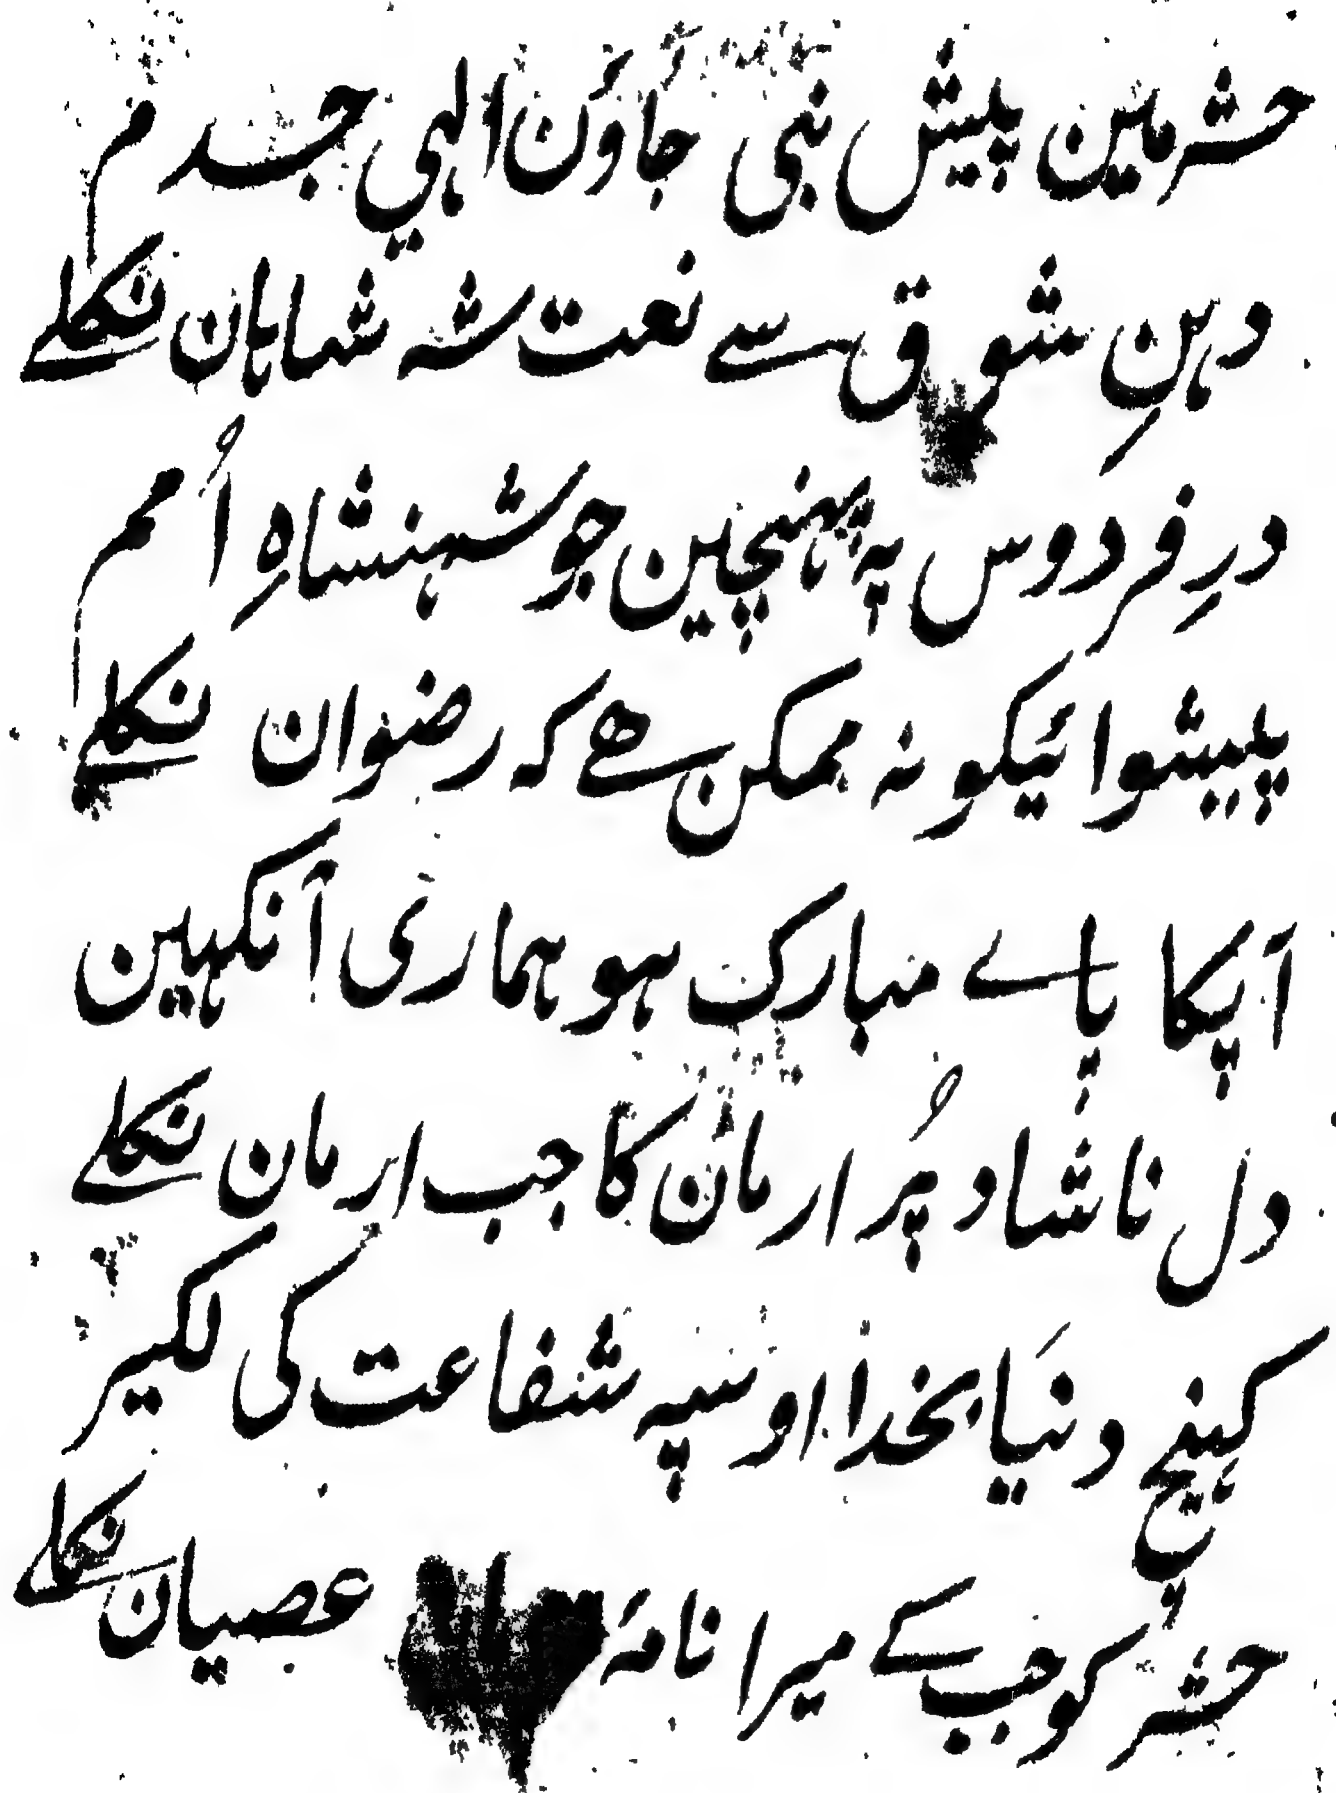 حشر مین پیش نبی جاؤن الہی جسدم
دہنِ شوق سے نعت شہ شاہان نکلے
درِ فردوس پہ پہنچین جو شہنشاہِ اُمم
پیشوائیکو نہ ممکن ہے کہ رضوان نکلے
آپکا پاے مبارک ہو ہماری آنکہین
دل ناشاد پُر ارمان کا جب ارمان نکلے
کہنیچ دنیَا بخدا اوسپہ شفاعت کی لکیر
حشر کو جب کے میرا نامۂ عصیان نکلے